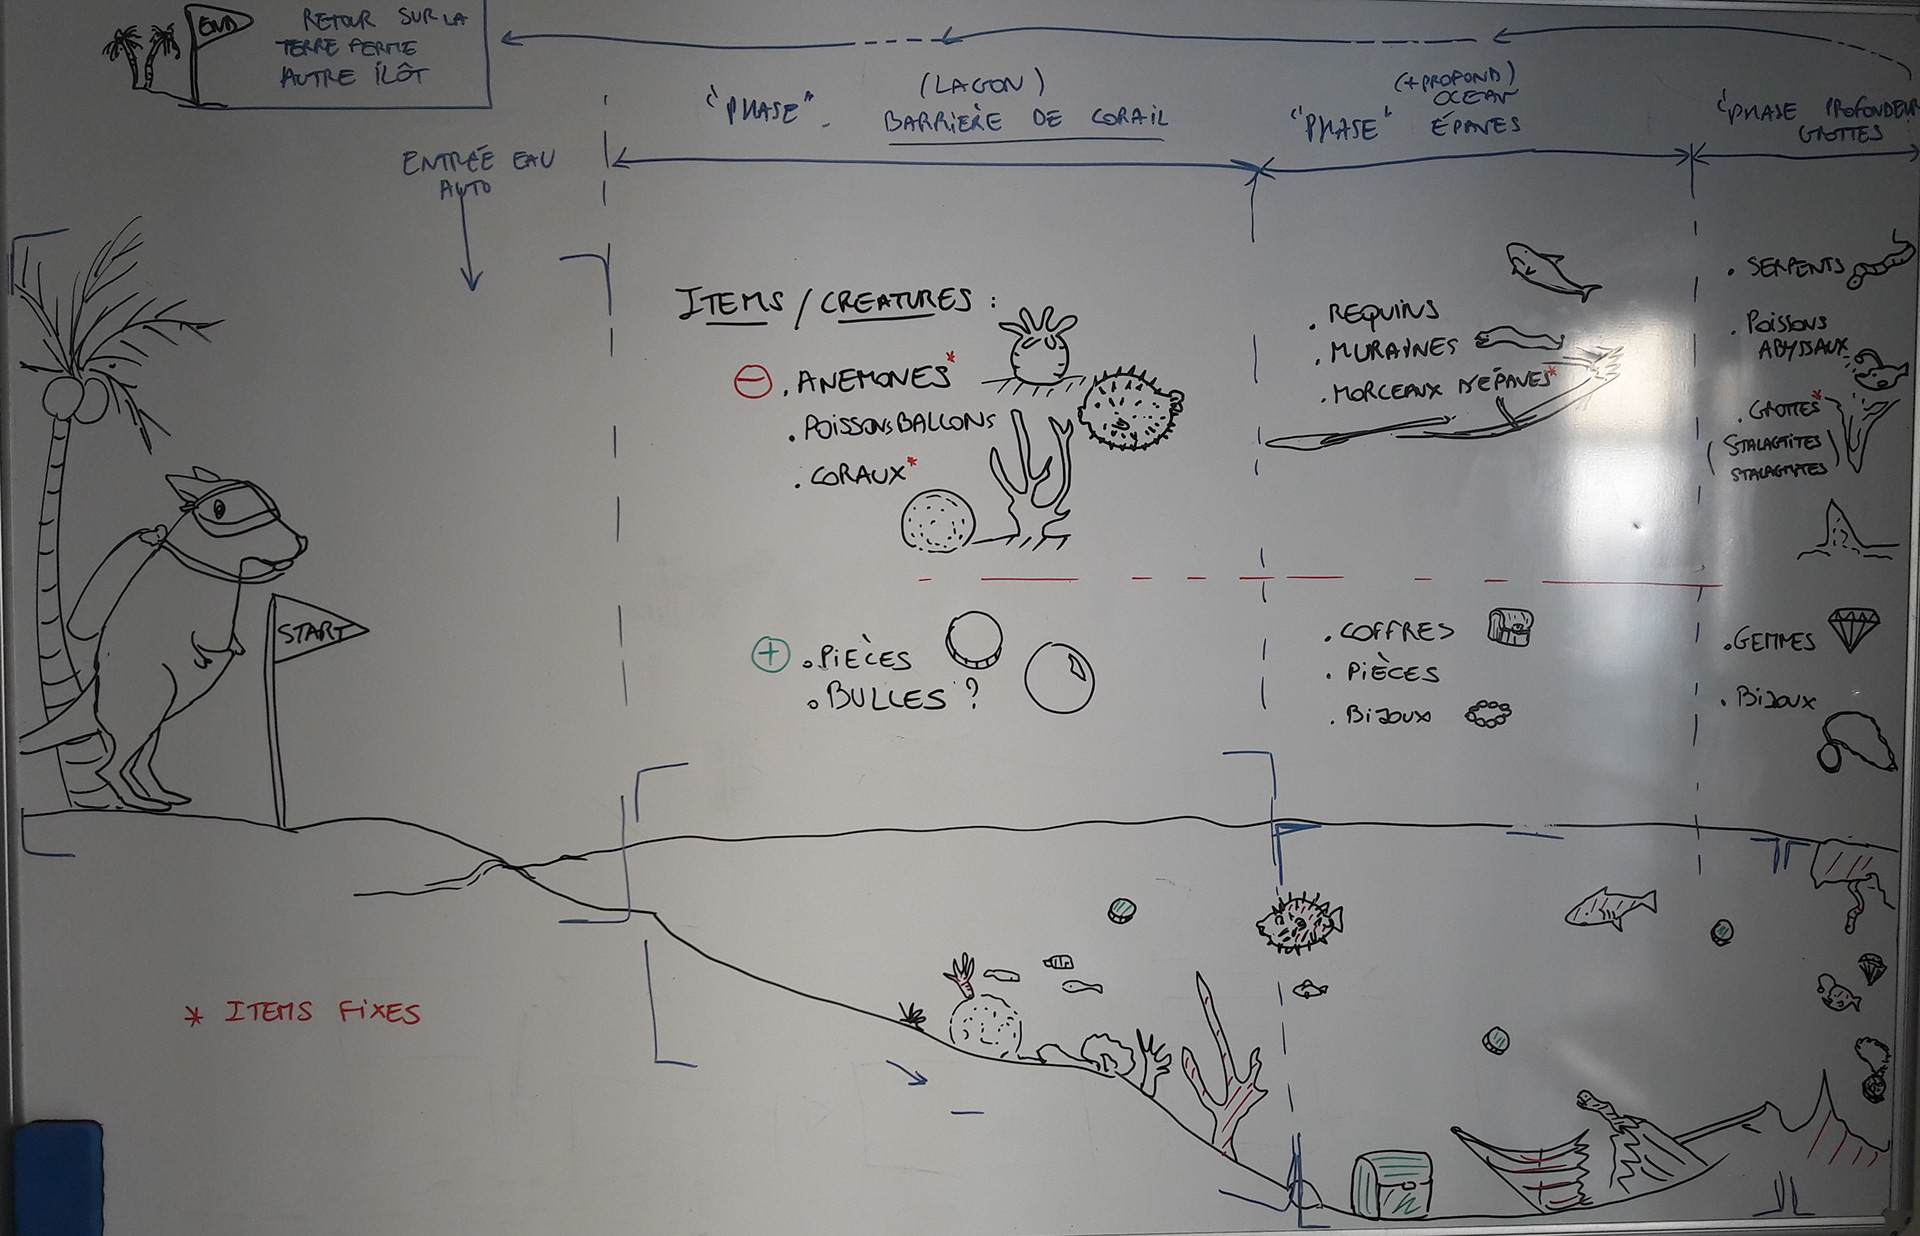 END
RETOUR SUR LA
TERRE FERME
AUTRE ÎLÔT
ENTRÉE EAU
AUTO
"PHASE"
(LAGON)
BARRIÈRE DE CORAIL
"PHASE"
(+PROFOND)
OCEAN
ÉPAVES
"PHASE PROFONDEUR
GROTTES
ITEMS / CREATURES :
⊖ . ANEMONES*
. POISSONS BALLONS
. CORAUX*
⊕ . PIÈCES
. BULLES ?
. REQUINS
. MURAYNES
. MORCEAUX D'ÉPAVES*
. COFFRES
. PIÈCES
. BIJOUX
. SERPENTS
. POISSONS
ABYSSAUX
. GROTTES*
(STALAGTITES
STALAGMYTES)
. GEMMES
. BIJOUX
START
* ITEMS FIXES